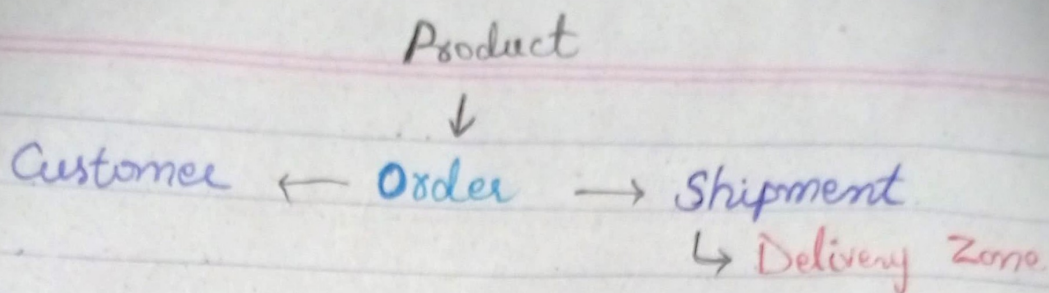 Product
↓
Customer ← Order → Shipment
↳ Delivery Zone